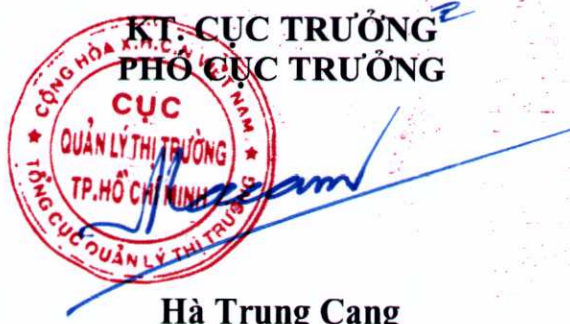 KT. CỤC TRƯỞNG
PHÓ CỤC TRƯỞNG
CỘNG HÒA X.H.C.N VIỆT NAM
CỤC
QUẢN LÝ THỊ TRƯỜNG
TP.HỒ CHÍ MINH
TỔNG CỤC QUẢN LÝ THỊ TRƯỜNG
Hà Trung Cang